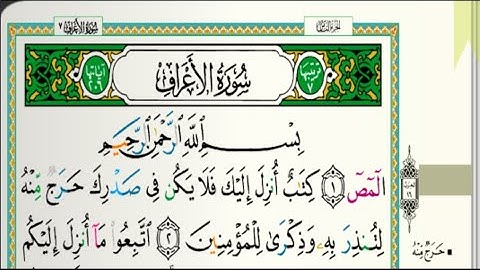 سُورَةُ الأَعْرَافِ ٧
سُورَةُ الأَعْرَافِ
ترتيبها ٧
آياتها ٢٠٦
بِسْمِ اللَّهِ الرَّحْمَٰنِ الرَّحِيمِ
الٓمٓصٓ ١ كِتَٰبٌ أُنزِلَ إِلَيْكَ فَلَا يَكُن فِى صَدْرِكَ حَرَجٌ مِّنْهُ
لِتُنذِرَ بِهِۦ وَذِكْرَىٰ لِلْمُؤْمِنِينَ ٢ ٱتَّبِعُوا۟ مَآ أُنزِلَ إِلَيْكُم
حَرَجٌ مِّنْهُ